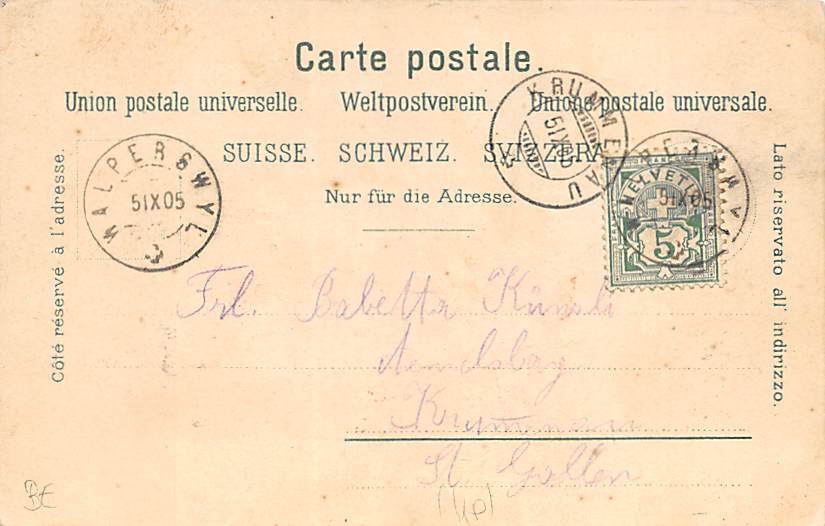 Carte postale.
Union postale universelle. Weltpostverein. Unione postale universale.
SUISSE. SCHWEIZ. SVIZZERA.
Nur für die Adresse.
Côté réservé à l'adresse.
Lato riservato all' indirizzo.
WALPERSWYL
5 IX 05
KRUMMENAU
5 IX 05
WALPERSWYL
5 IX 05
HELVETIA
5
Frl. Babetta Künzli
Krummenau
St. Gallen
BE